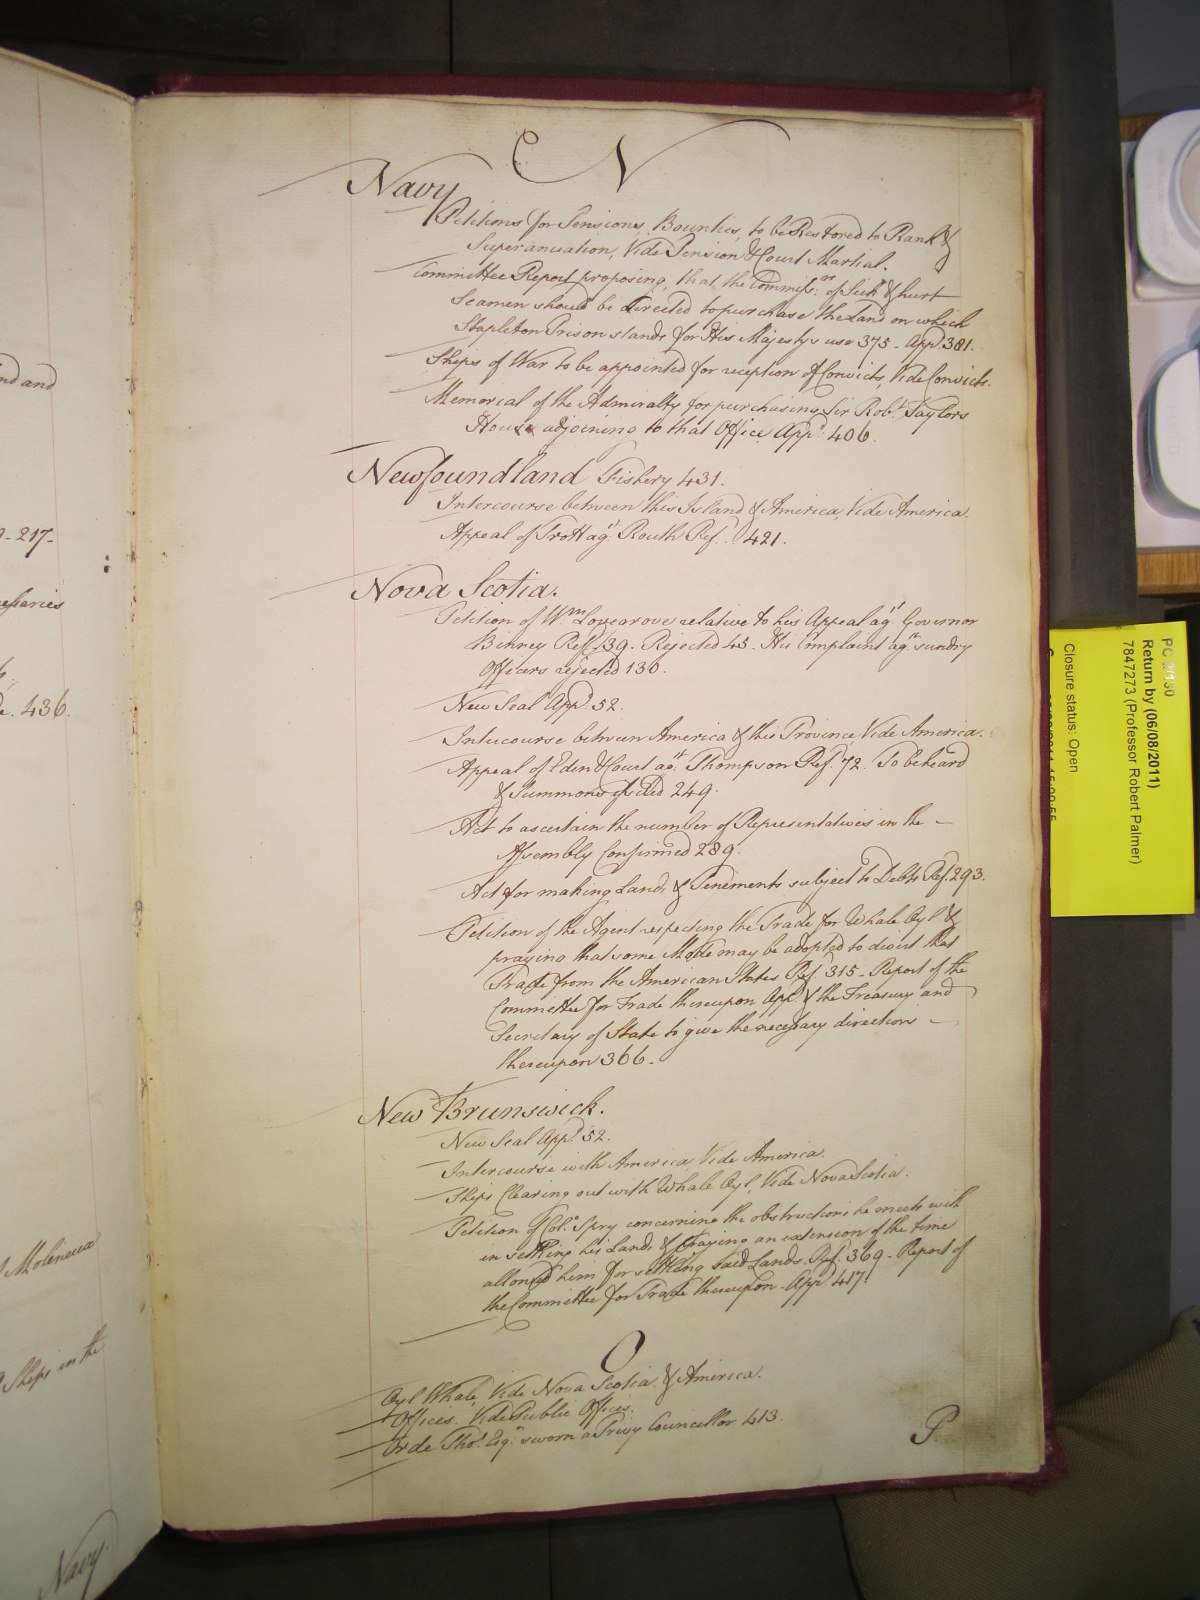 nd and
- 217-
cessaries
436.
Moleneux
Ships in the
Navy.
N
Navy
Petitions for Pensions, Bounties, to be Restored to Rank &
Superanuation, Vide Pension & Court Martial.
Committee Report proposing, that the Commiss.rs of Sick & hurt
Seamen should be directed to purchase the Land on which
Stapleton Prison stands for His Majestys use 375 - App.d 381.
Ships of War to be appointed for reception of Convicts, Vide Convicts.
Memorial of the Admiralty for purchasing Sir Rob.t Taylors
House adjoining to that Office App.d 406.
Newfoundland Fishery 431.
Intercourse between this Island & America, Vide America.
Appeal of Trott ag.t Routh Ref.d 421.
Nova Scotia.
Petition of W.m Lovegrove relative to his Appeal ag.t Governor
Binney Ref.d 39. Rejected 45. His Complaint ag.st sundry
Officers rejected 130.
New Seal App.d 52.
Intercourse between America & this Province Vide America.
Appeal of Eden & Court ag.st Thompson Ref.d 72. To be heard
& Summons affixed 249.
Act to ascertain the number of Representatives in the -
Assembly Confirmed 289.
Act for making Lands & Tenements subject to Debts Ref.d 293.
Petition of the Agent respecting the Trade for Whale Oyl &
praying that some Mode may be adopted to divert that
Trade from the American States Ref.d 315 - Report of the
Committee for Trade thereupon App.d & the Treasury and
Secretary of State to give the necessary directions -
thereupon 366.
New Brunswick.
New Seal App.d 52.
Intercourse with America, Vide America.
Ships Clearing out with Whale Oyl, Vide Nova Scotia.
Petition of Col.o Spry concerning the obstructions he meets with
in settling his Lands & Praying an extension of the time
allowed him for settling said Lands Ref.d 369 - Report of
the Committee for Trade thereupon App.d 417.
O
Oyl Whale, Vide Nova Scotia & America.
Offices. Vide Public Offices.
Orde Tho.s Esq.r sworn a Privy Councellor 413.
P.
PC 2/130
Return by (06/08/2011)
7847273 (Professor Robert Palmer)
Closure status: Open